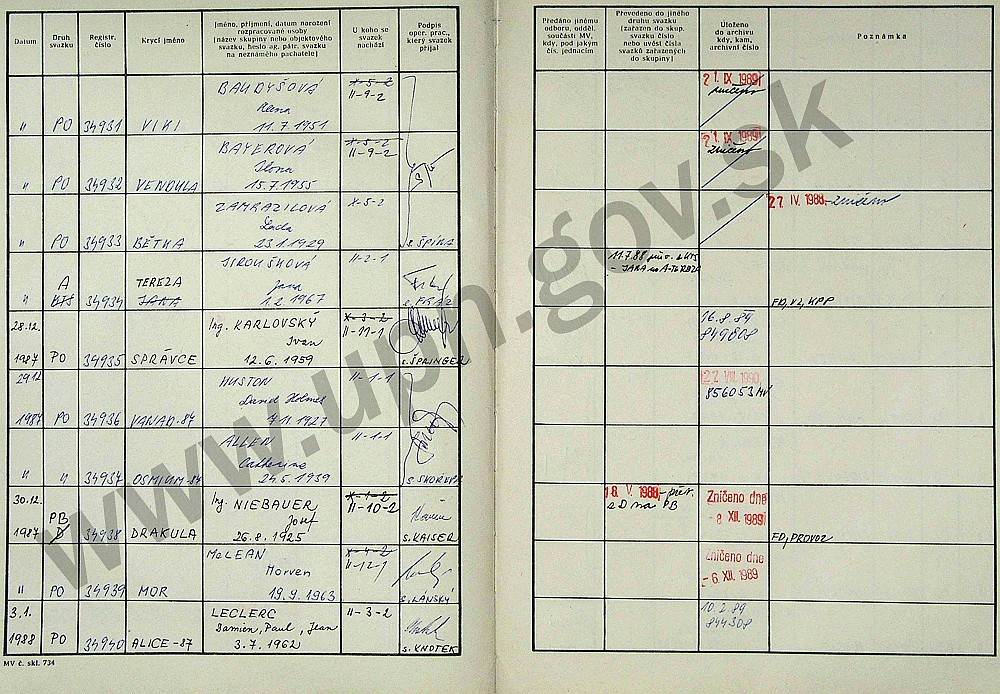 Datum
Druh svazku
Registr. číslo
Krycí jméno
Jméno, příjmení, datum narození
rozpracované osoby
(název skupiny nebo objektového
svazku, heslo ag. pátr. svazku
na neznámého pachatele)
U koho se
svazek
nachází
Podpis
oper. prac.,
který svazek
přijal
Předáno jinému
odboru, odděl.
součásti MV,
kdy, pod jakým
čís. jednacím
Převedeno do jiného
druhu svazku
(zařazen do skup.
svazku číslo
nebo uvést čísla
svazků zařazených
do skupiny)
Uloženo
do archivu
kdy, kam,
archivní číslo
Poznámka
BAUDYŠOVÁ X-5-2 21. IX. 1989
Rena II-9-2 zničeno
" PO 34931 VIKI 11.7.1951
BAYEROVÁ X-5-2 21. IX. 1989
Ilona II-9-2 zničeno
" PO 34932 VENDULA 15.7.1955
ZAMRAZILOVÁ X-5-2 27. IV. 1988 - zničeno
Lada
" PO 34933 BĚTKA 23.1.1929 s. ŠPÍNA
A TEREZA JIROUŠKOVÁ II-2-1 11.7.88
Jana - JARKA na A-TEREZA
" KTS 34934 JARKA 1.2.1967 FD, VZ, KPP
28.12. Ing. KARLOVSKÝ X-3-2 16.8.89
Ivan II-11-1 849808
1987 PO 34935 SPRÁVCE 12.6.1959 s. ŠPRINGER
29.12 HUSTON II-1-1 27. VIII. 1990
David Holmes 856053 MV
1987 PO 34936 VANAD-87 7.11.1927
ALLEN II-1-1
Catherine
" " 34937 OSMIUM-87 24.5.1959
30.12. PB Ing. NIEBAUER X-1-2 18. V. 1988 - přev. Zničeno dne
Josef II-10-2 z D na PB - 8. XII. 1989
1987 D 34938 DRAKULA 26.8.1925 s. KAISER FD, PROVOZ
McLEAN X-4-2 Zničeno dne
Morven II-12-1 - 6. XII. 1989
" PO 34939 MOR 19.9.1963 s. LÁNSKÝ
3.1. LECLERC II-3-2 10.2.89
Damien, Paul, Jean 844308
1988 PO 34940 ALICE-87 3.7.1962 s. KNOTEK
MV č. skl. 734
www.upn.gov.sk